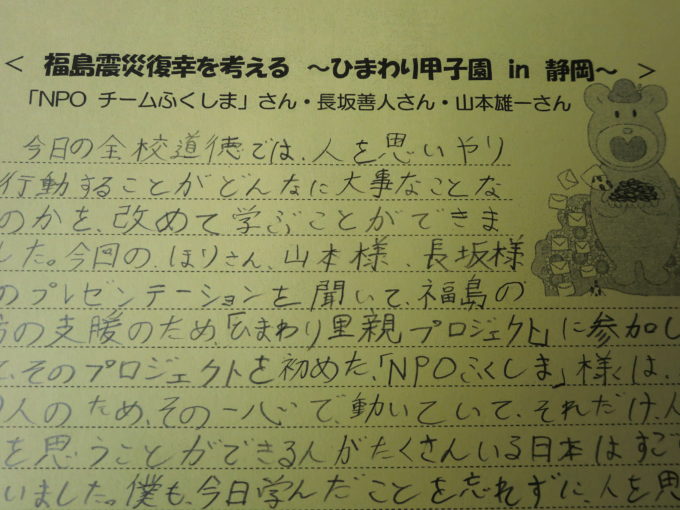 ＜ 福島震災復幸を考える ～ひまわり甲子園 in 静岡～ ＞
「NPO チームふくしま」さん・長坂善人さん・山本雄一さん
今日の全校道徳では、人を思いやり
行動することがどんなに大事なことな
のかを、改めて学ぶことができま
した。今回の、ほりさん、山本様、長坂様
のプレゼンテーションを聞いて、福島の
の支援のため、「ひまわり里親プロジェクト」に参加し
、そのプロジェクトを初めた、「NPOふくしま」様は、
人のため、その一心で動いていて、それだけ、人
を思うことができる人がたくさんいる日本はすご
いました。僕も、今日学んだことを忘れずに、人を思